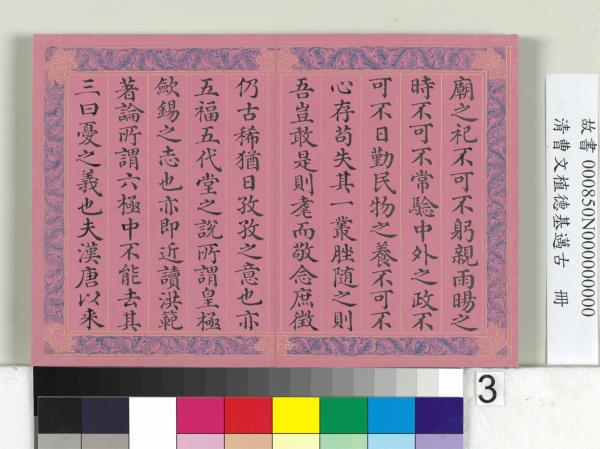 廟之祀不可不躬親雨暘之
時不可不常驗中外之政不
可不日勤民物之養不可不
心存苟失其一叢脞随之則
吾豈敢是則耄而敬念庶徵
仍古稀猶日孜孜之意也亦
五福五代堂之說所謂皇極
歛錫之志也亦即近讀洪範
著論所謂六極中不能去其
三曰憂之義也夫漢唐以来
故書 000850N000000000
清曹文植德基邁古 冊
3